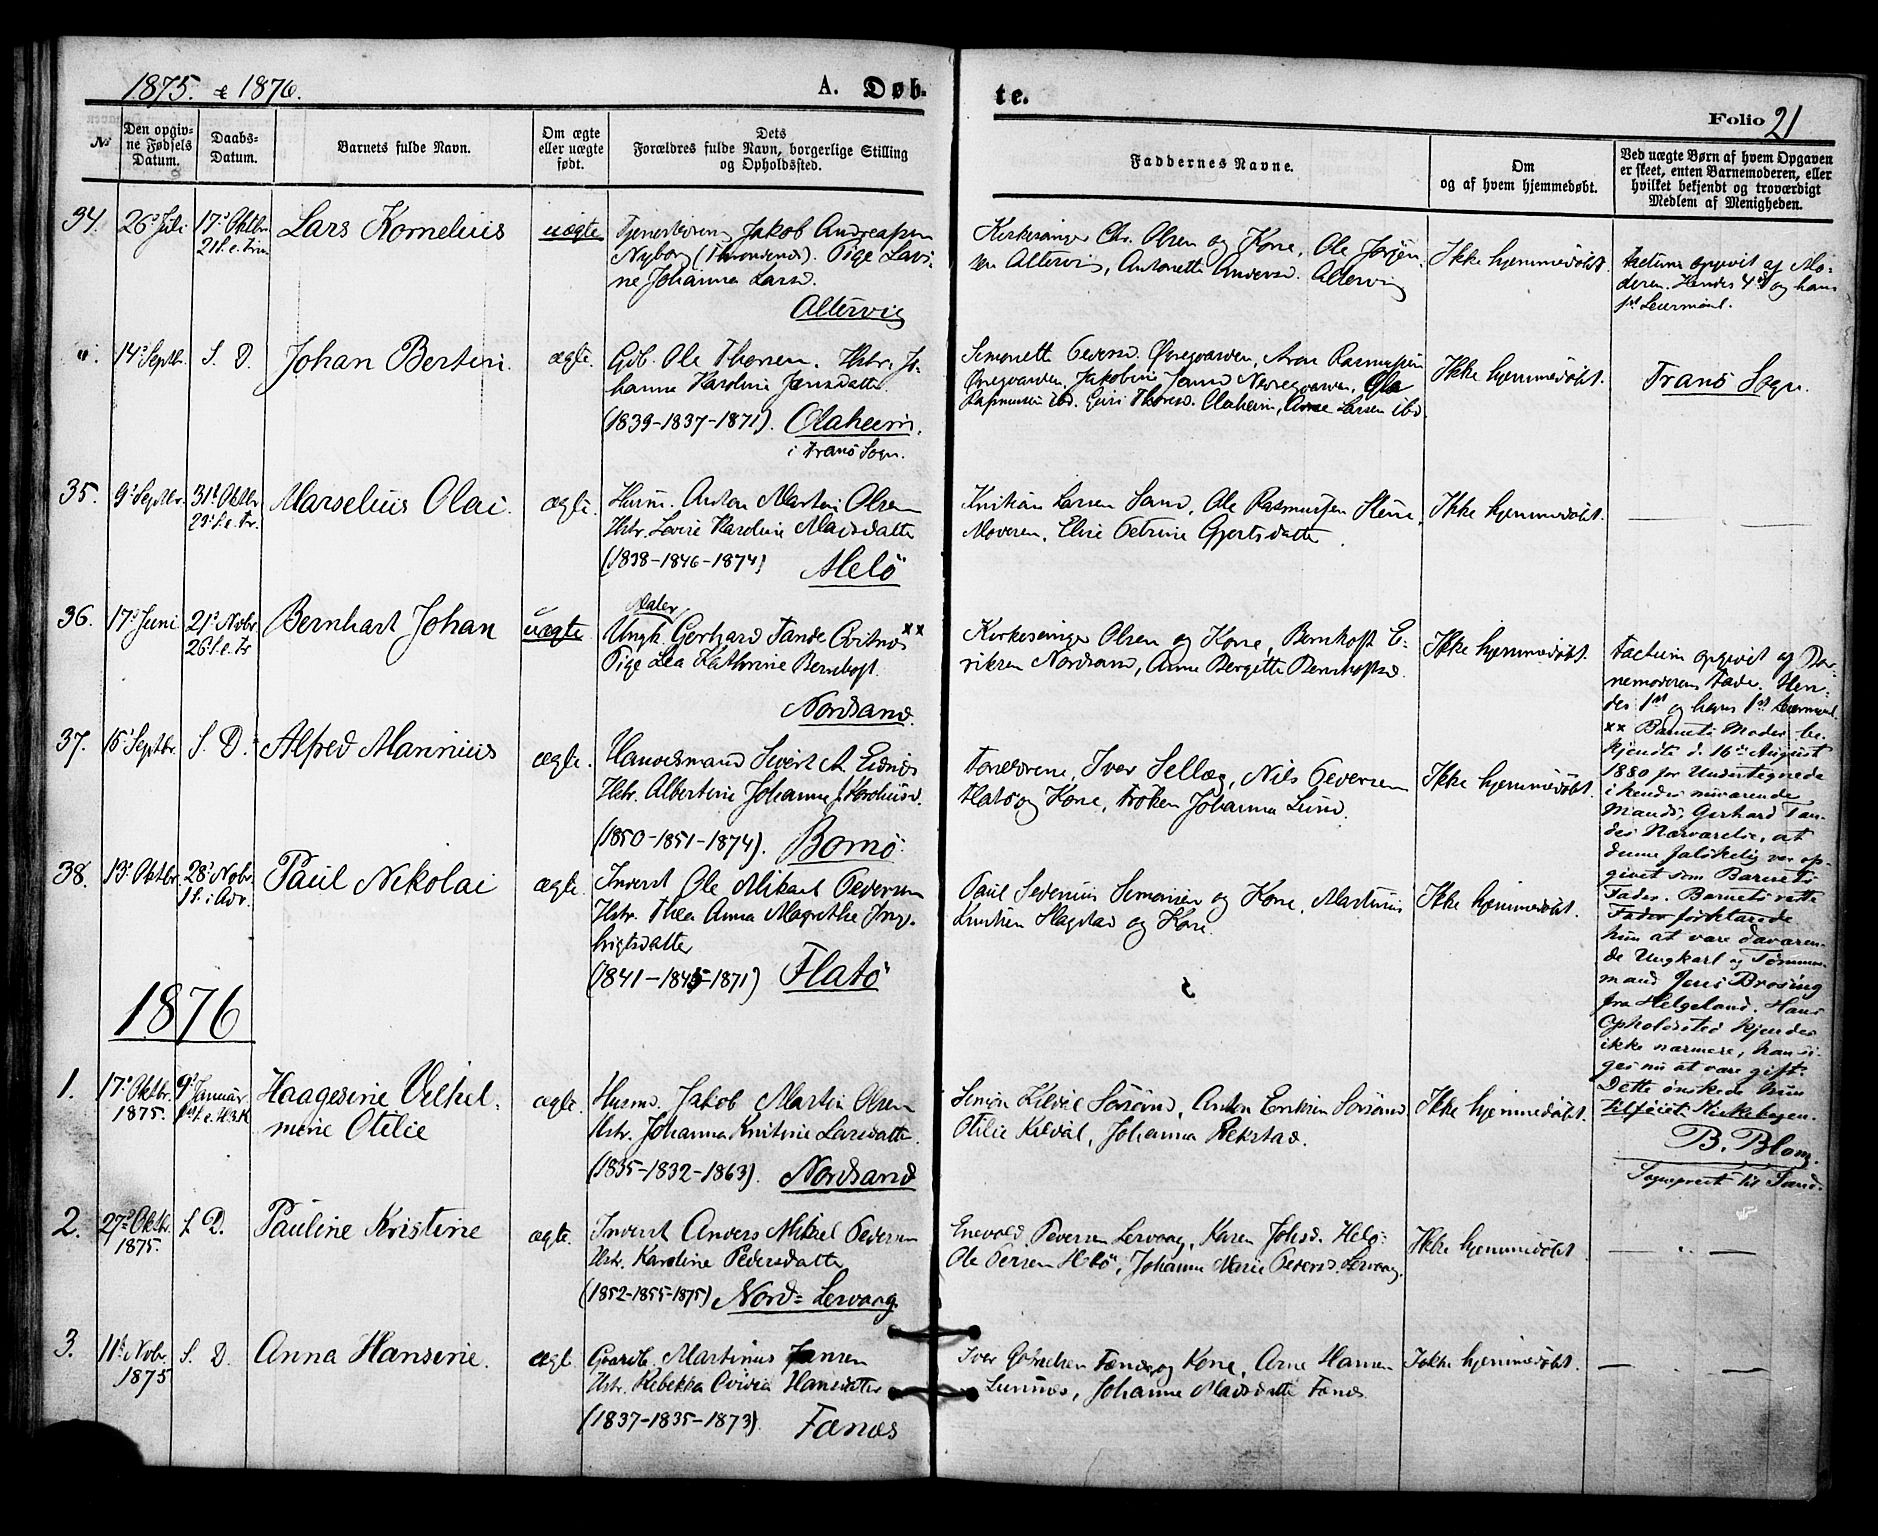 1875. & 1876.
A. Døb-
te.
Folio 21
No
Den opgiv-
ne Fødsels
Datum.
Daabs-
Datum.
Barnets fulde Navn.
Om ægte
eller uægte
født.
Dets
Forældres fulde Navn, borgerlige Stilling
og Opholdssted.
Faddernes Navne.
Om
og af hvem hjemmedøbt.
Ved uægte Børn af hvem Opgaven
er skeet, enten Barnemoderen, eller
hvilket bekjendt og troværdigt
Medlem af Menigheden.
34. 26 Juli 17 Oktbr. Lars Kornelius uægte
21 S. e. Trin
Jakob Andreassen
Nyborg (Throndenes). Pige Lavi-
ne Johanna Larsd.
Altervig
Kirkesanger Chr. Olsen og Kone, Ole Jørgen-
sen Altervig, Antonette Andersd. Altervig
Ikke hjemmedøbt.
Factum opgivet af Mo-
deren. Hendes 4de og hans
1st Leiermaal.
". 14 Septbr. S. D. Johan Bertin. ægte.
Gdb. Ole Thoresen. Hstr. Jo-
hanna Karoline Jensdatter
(1839-1837-1871). Olaheim.
i Tranö Sogn.
Simonette Pedersd. Øvregaarden, Aron Rasmussen
Øvregaarden, Jakobine Jensd Nedregaarden, Ole
Rasmussen ibd. Guri Thoresd. Olaheim, Arne Larsen ibd
Ikke hjemmedøbt.
Tranö Sogn.
35. 9 Septbr. 31 Oktbr Marselius Olai. ægte.
23 S. e. Tr.
Husm. Anton Martin Olsen
Hstr. Lovise Karoline Madsdatter
(1838-1846-1874) Melö
Kristian Larsen Sand, Ole Rasmussen Stene,
Moderen, Elise Petrine Gjertsdatter.
Ikke hjemmedøbt.
36. 17 Juni 21 Novbr Bernhart Johan uægte
26 S. e. Tr
Maler
Ungk. Gerhard Tande Qvitnes xx
Pige Lea Kathrine Bernhoft.
Nordsand.
Kirkesanger Olsen og Kone, Bernhoft E-
riksen Nordsand, Anne Bergitte Bernhoftsd.
Ikke hjemmedøbt.
Factum opgivet af Bar-
nemoderens Fader. Hen-
des 1st og hans 1st Leiermaal.
xx Barnets Moder be-
kjendte d. 16de August
1880 for Undertegnede
i hendes nuværende
Mands, Gerhard Tan-
des Nærværelse, at
denne falskelig var op-
givet som Barnets
Fader. Barnets rette
Fader forklarede
hun at være daværen-
de Ungkarl og Tømmer-
mand Jens Brosing
fra Helgeland. Hans
Opholdssted kjendes
ikke nærmere, han si-
ges nu at være gift.
Dette ønskede hun
tilføiet Kirkebogen.
B. Blom.
Sogneprest til Sand.
37. 15 Septbr. S. D. Alfred Marinius ægte.
Handelsmand Sivert A. Eidnes
Hstr. Albertine Johanne Kordiusd.
(1850-1851-1874). Bornö.
Forældrene, Iver Selleg, Nils Pedersen
Flatö og Kone, Frøken Johanna Lund.
Ikke hjemmedøbt.
38. 13 Oktbr 28 Novbr. Paul Nikolai ægte.
1 S. i Adv.
Inderst Ole Mikael Pedersen
Hstr. Thea Anna Magrethe Ing-
brigtsdatter
(1841-1845-1871) Flatö
Paul Severinus Simonsen og Kone, Martinus
Kristian Slagstad og Kone.
Ikke hjemmedøbt.
1876
1. 17 Oktbr. 9 Januar Haagesine Vilhel- ægte.
1875. 1ste S. e. H3K mine Otelie
Husmd. Jakob Martin Olsen
Hstr. Johanna Kristine Larsdatter
(1835-1832-1863). Nordsand
Simon Kilvæl Sørsand, Anton Eriksen Sørsand
Otilie Kilvæl, Johanna Rekstad.
Ikke hjemmedøbt.
2. 27 Oktbr. S. D. Pauline Kristine ægte.
1875.
Inderst Anders Mikael Pedersen
Hstr. Karoline Pedersdatter
(1852-1855-1875) Nord=Lervaag.
Enevold Pedersen Lervaag, Karen Johsd. Helö
Ole Persen Helö, Johanna Marie Peders. Lervaag.
Ikke hjemmedøbt.
3. 11 Novbr. S. D. Anna Hansine. ægte
1875
Gaardb. Martinus Jensen
Hstr. Rebekka Ovidia Hansdatter
(1837-1835-1873). Fænæs
Iver Gabrielsen Fænæs og Kone, Arne Hansen
Lunnæs, Johanne Madsdatter Fænæs
Ikke hjemmedøbt.